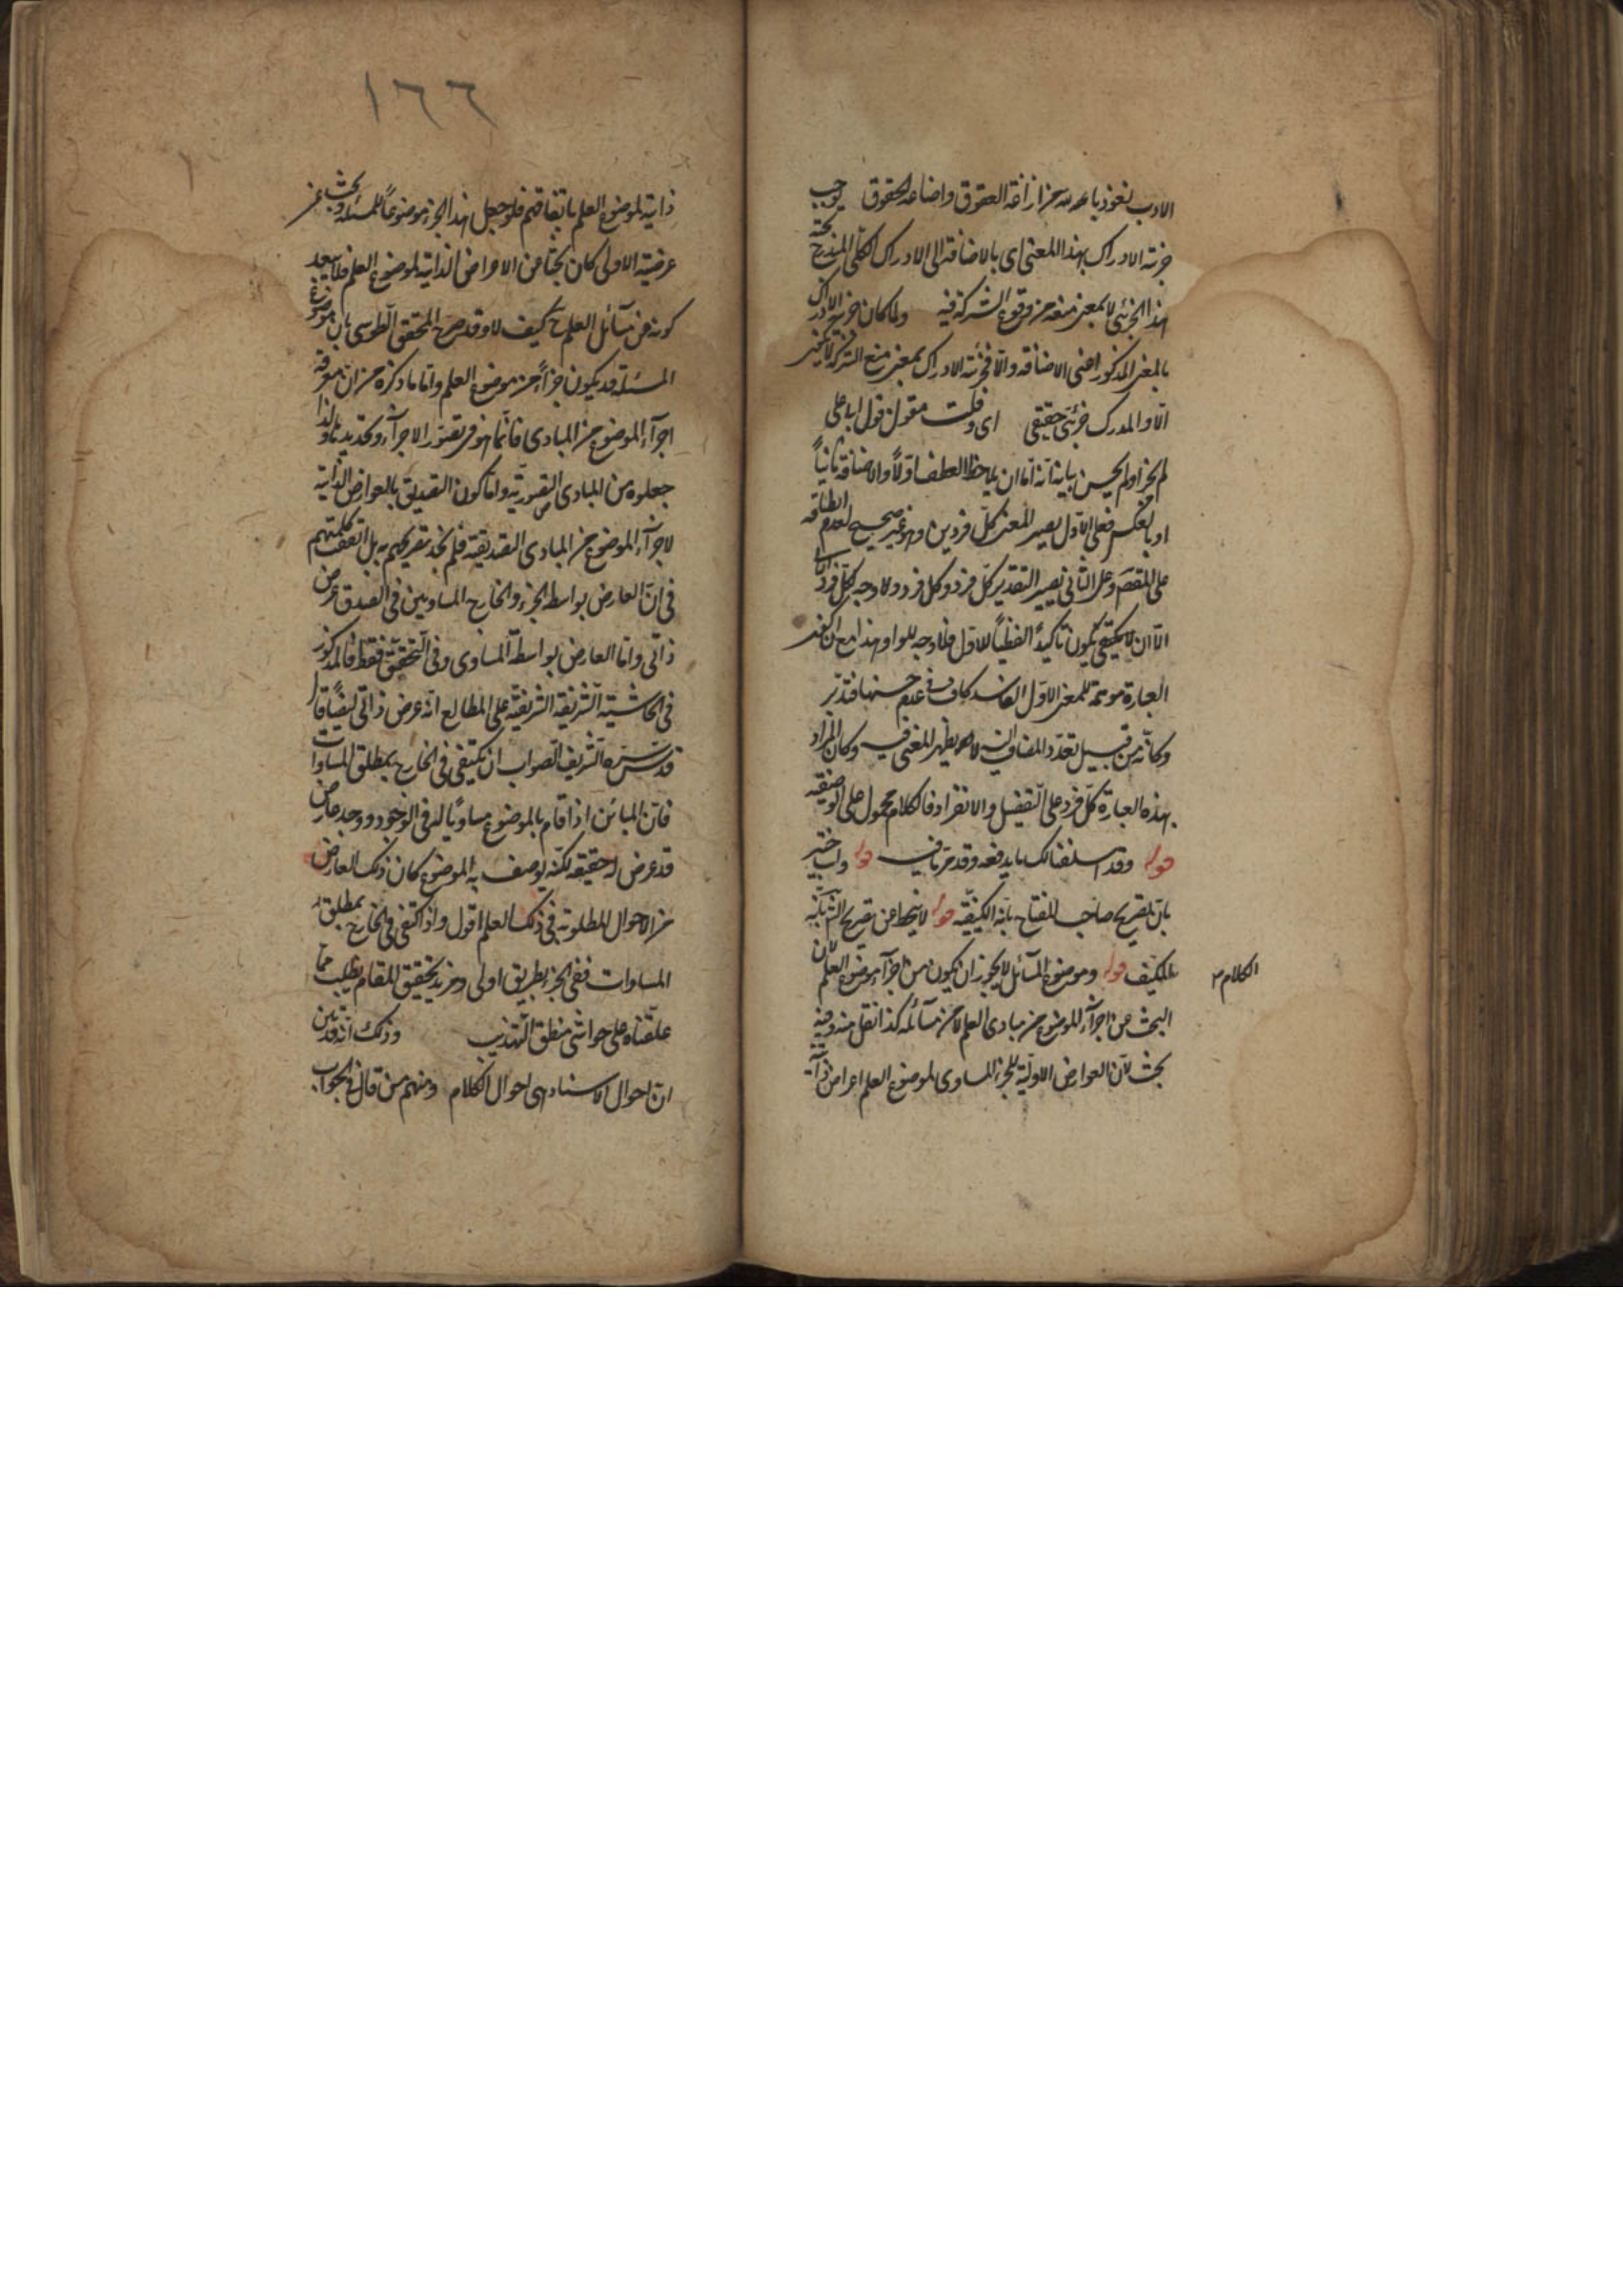 الادب نعوذ بالله من ازلفة العقوق واضاعة الحقوق يوجب
جزئية الادراك بهذا المعنى اى بالاضافة الى الادراك الكلى المندرج تحته
هذا الجزئى لا بمعنى منعه من وقوع الشركة فيه ولما كان جزئية الادراك
بالمعنى المذكور اعنى الاضافة والا فجزئية الادراك بمعنى منع الشركة لا
الا والمدرك جزئى حقيقى اى وقلت مقول قول ابا على
لم يجز او لم يحسن بيانه انه اما ان يلاحظ العطف اولاً والاضافة ثانياً
او بالعكس فعلى الاول يصير المعنى كل فردين وهو غير صحيح لعدم انطباقه
على المقصد وعلى الثانى يصير التقدير كل فرد وكل فرد ولا وجه لكل فرد الثانى
الا ان يكون تأكيداً لفظياً للاول فلا وجه للواو هذا مع ان
العبارة موهمة للمعنى الاول الفاسد كاف فى عدم حسنها فتدبر
وكانه من قبيل تعدد المضاف اليه لا يظهر المعنى فيه وكان المراد
بهذه العبارة كل فرد على التفصيل والانفراد فالكلام محمول على التوصيفية
قوله وقد اسلفنا لك ما يدفعه وقد مر ما فيه قوله وانت خبير
بان تصريح صاحب المفتاح بانه الكيفية قوله لا ينحط عن تصريح الثانية
بالمكيف قوله وموضوع المسائل لا يجوز ان يكون من اجزاء موضوع العلم لان
الكلام
البحث عن اجزاء الموضوع من مبادى العلم لا من مسائله كذا نقل منه وفيه
بحث لان العوارض الاولية للجزء المساوى لموضوع العلم اعراض ذاتية
١٦٦
ذاتية لموضوع العلم باتفاقهم فلو جعل هذا الجزء موضوعاً للمسئلة وبحث عن
عرضيته الاولى كان بحثا عن الاعراض الذاتية لموضوع العلم فلا يبعد
كونه من مسائل العلم ح كيف لا وقد صرح المحقق الطوسى بان موضوع
المسئلة قد يكون جزأ من موضوع العلم واما ما ذكره من ان معرفة
اجزاء الموضوع من المبادى فانما هو فى تصور الاجزاء وتحديدها ولذا
جعلوه من المبادى التصورية واما كون التصديق بالعوارض الذاتية
لاجزاء الموضوع من المبادى التصديقية فلم نجد تصريحهم به بل اتفقت كلمتهم
فى ان العارض بواسطة الجزء والخارج المساويين فى الصدق عرض
ذاتى واما العارض بواسطة المساوى فى التحقق فقط فالمذكور
فى الحاشية الشريفة الشريفية على المطالع انه عرض ذاتى ايضاً قال
قدس سره الشريف الصواب ان يكتفى فى الخارج بمطلق المساوات
فان المبائن اذا قام بالموضوع مساوياً له فى الوجود ووجد عارض
قد عرض له حقيقة لكنه يوصف به الموضوع كان ذلك العارض
من الاحوال المطلوبة فى ذلك العلم اقول واذا اكتفى فى الخارج بمطلق
المساوات ففى الجزء بطريق اولى ومزيد تحقيق المقام يطلب مما
علقناه على حواشى منطق التهذيب وذلك انه قد تبين
ان احوال الاسناد هى احوال الكلام ومنهم من قال فى الجواب